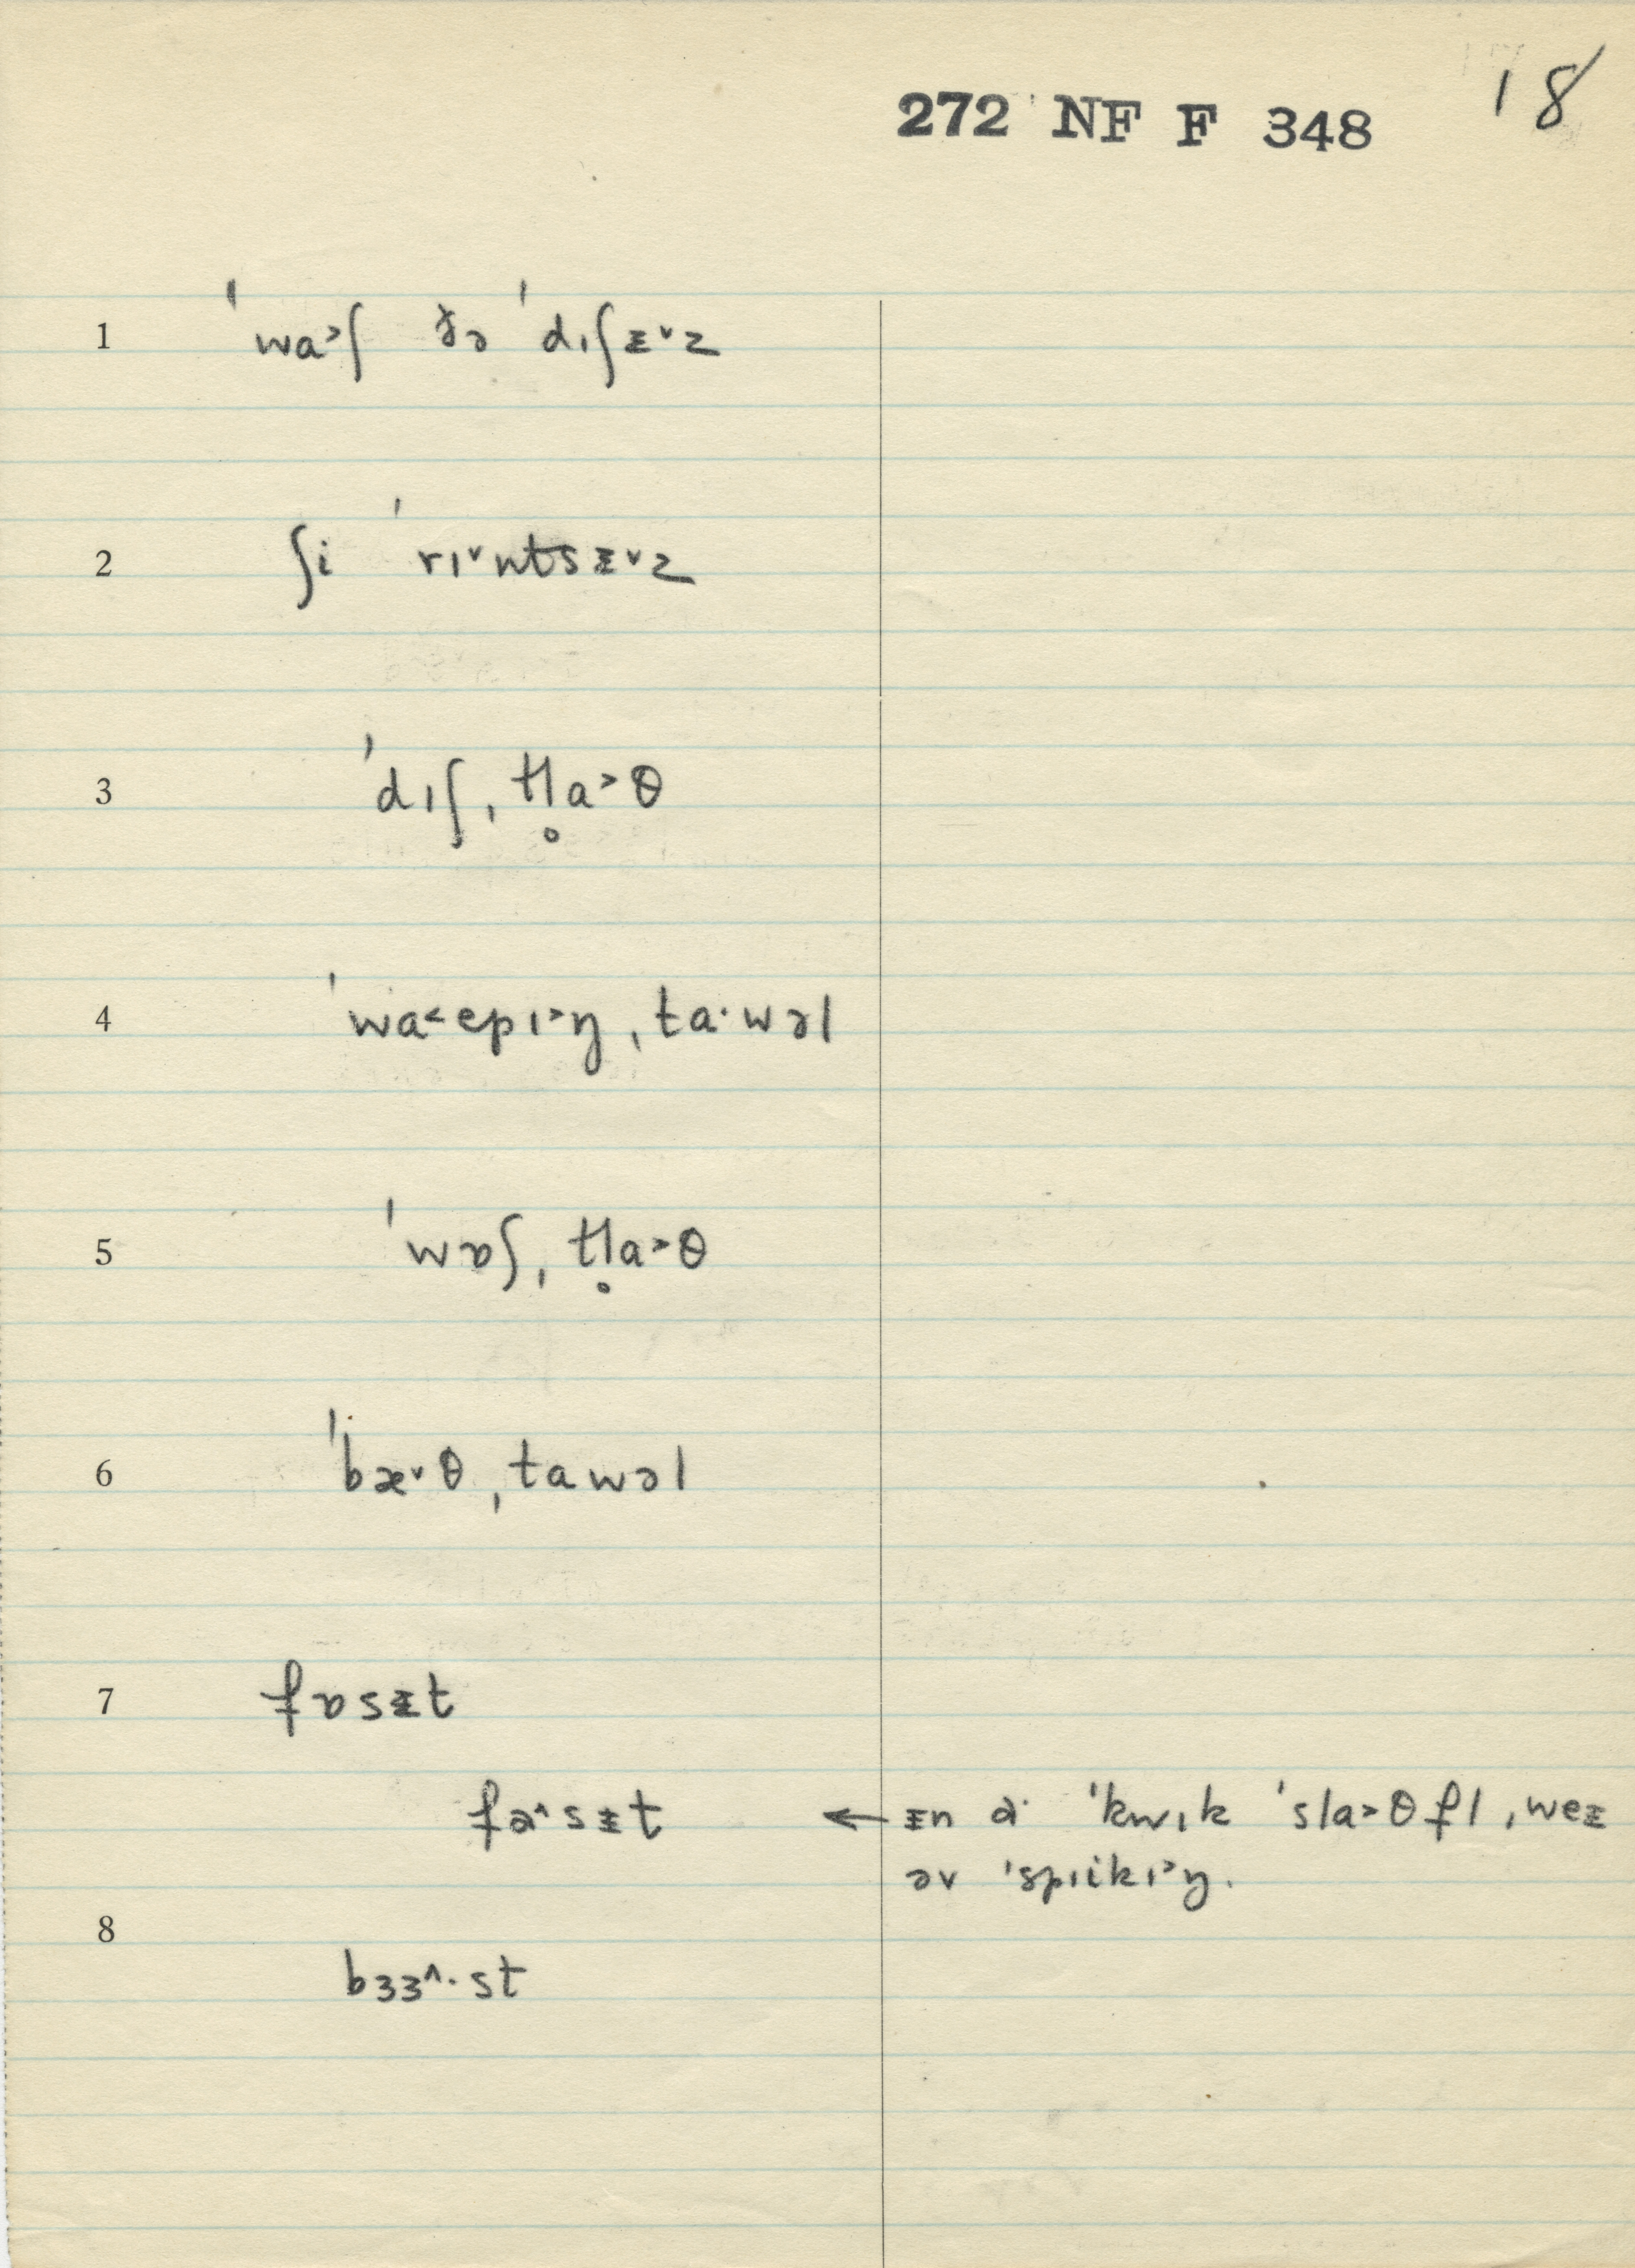 272 NF F 348 18
1 ˈwa˃ʃ ðə ˈdɪʃᵻ˅z
2 ʃi ˈrɪ˅ntsᵻ˅z
3 ˈdɪʃˌtl̥a˃θ
4 ˈwa˂epɪ˃ŋˌta·wəl
5 ˈwɒʃˌtl̥a˃θ
6 ˈbæ˅θˌtawəl
7 fɒsᵻt
fɑ^sᵻt ← ᵻn ə· ˈkwɪk ˈsla˃θflˌweᵻ
əv ˈspɪikɪ˃ŋ.
8
bɜɜ^·st